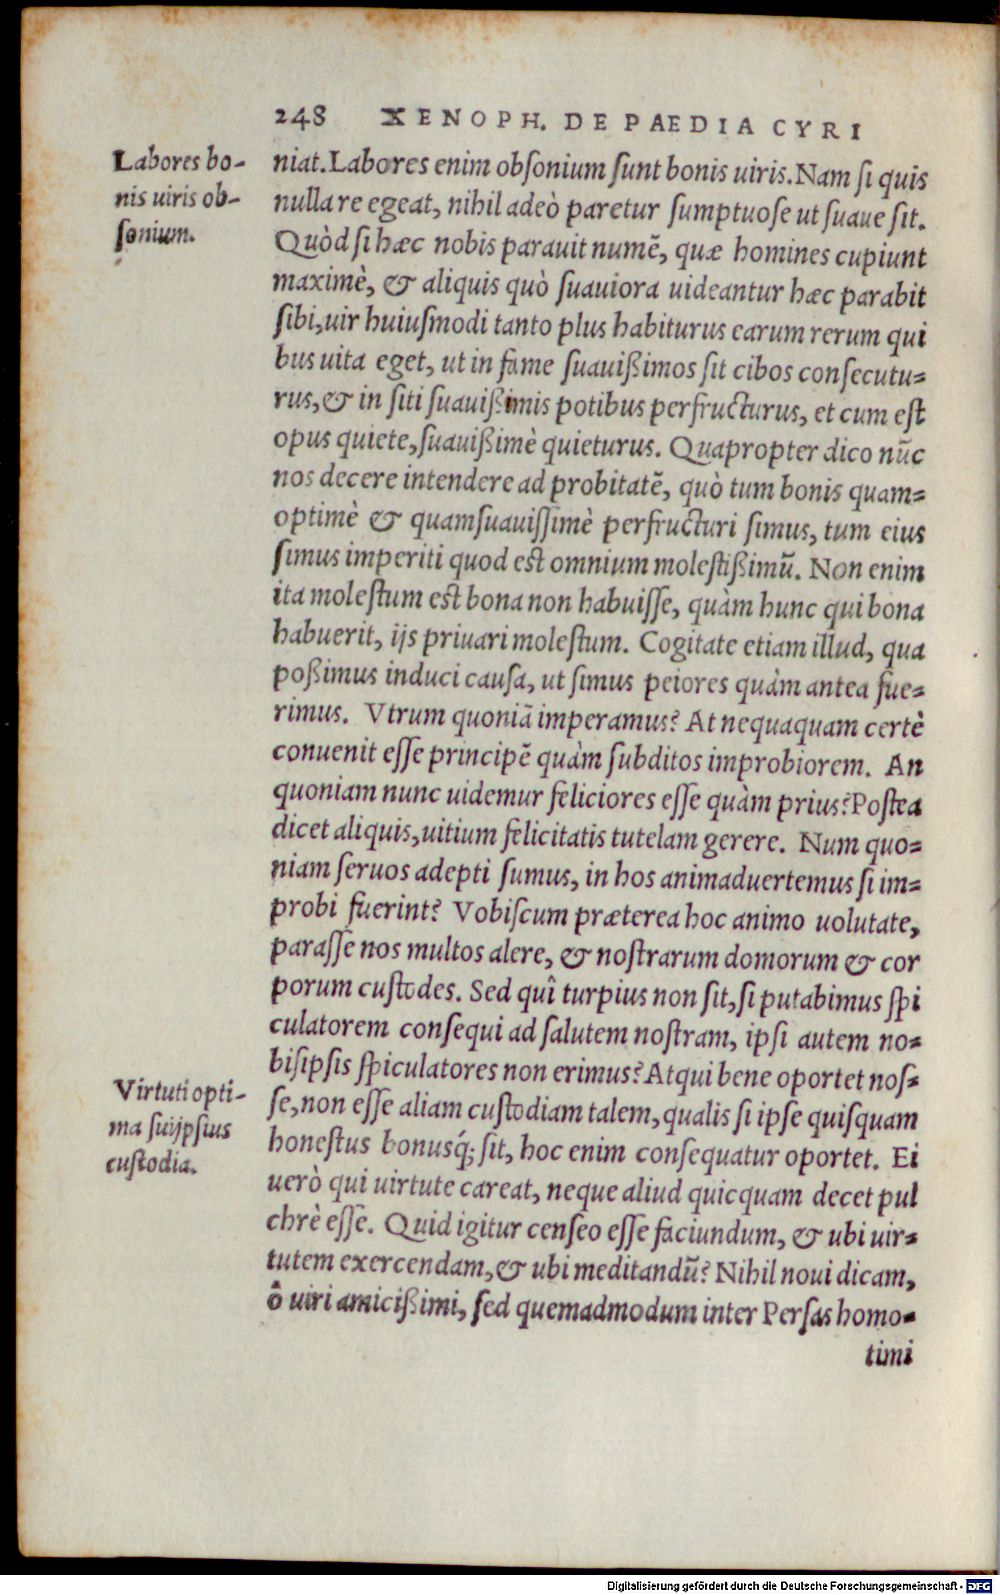 248 XENOPH. DE PAEDIA CYRI
Labores bo-
nis uiris ob-
sonium.
niat. Labores enim obsonium sunt bonis uiris. Nam si quis
nulla re egeat, nihil adeò paretur sumptuose ut suaue sit.
Quòd si hæc nobis parauit numẽ, quæ homines cupiunt
maximè, & aliquis quò suauiora uideantur hæc parabit
sibi, uir huiusmodi tanto plus habiturus earum rerum qui
bus uita eget, ut in fame suauißimos sit cibos consecutu-
rus, & in siti suauißimis potibus perfructurus, et cum est
opus quiete, suauißimè quieturus. Quapropter dico nũc
nos decere intendere ad probitatẽ, quò tum bonis quam-
optimè & quamsuauissimè perfructuri simus, tum eius
simus imperiti quod est omnium molestißimũ. Non enim
ita molestum est bona non habuisse, quàm hunc qui bona
habuerit, ijs priuari molestum. Cogitate etiam illud, qua
poßimus induci causa, ut simus peiores quàm antea fue-
rimus. Vtrum quoniã imperamus? At nequaquam certè
conuenit esse principẽ quàm subditos improbiorem. An
quoniam nunc uidemur feliciores esse quàm prius? Postea
dicet aliquis, uitium felicitatis tutelam gerere. Num quo-
niam seruos adepti sumus, in hos animaduertemus si im-
probi fuerint? Vobiscum præterea hoc animo uolutate,
parasse nos multos alere, & nostrarum domorum & cor
porum custodes. Sed quî turpius non sit, si putabimus spi
culatorem consequi ad salutem nostram, ipsi autem no-
bisipsis spiculatores non erimus? Atqui bene oportet nos-
Virtuti opti-
ma suijpsius
custodia.
se, non esse aliam custodiam talem, qualis si ipse quisquam
honestus bonusq́; sit, hoc enim consequatur oportet. Ei
uerò qui uirtute careat, neque aliud quicquam decet pul
chrè esse. Quid igitur censeo esse faciundum, & ubi uir-
tutem exercendam, & ubi meditandũ? Nihil noui dicam,
ô uiri amicißimi, sed quemadmodum inter Persas homo-
timi
Digitalisierung gefördert durch die Deutsche Forschungsgemeinschaft - DFG